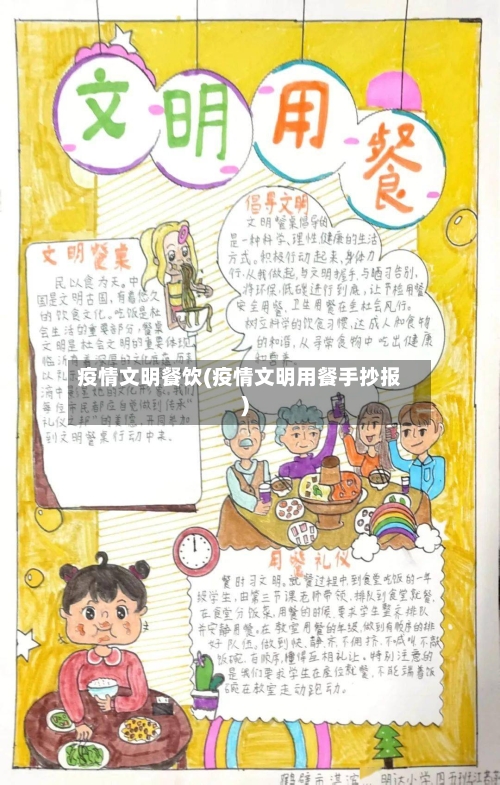 文明用餐
文明餐桌
民以食为天。中
国是文明古国,有着悠久
的饮食文化。吃饭是社
会生活的重要部分,餐桌
文明是社会文明的重要体现
礼仪
到文明餐桌行动中来。
倡导文明
文明餐桌倡导的
是一种科学,理性,健康的生活
方式。积极行动起来,身体力
行,从我做起,与文明握手,与陋习告别,
将环保,低碳进行到底,让节俭用餐
安全用餐、卫生用餐在全社会风行。
树立科学的饮食习惯,达成人和食物
的和谐,从寻常食物中吃出健康
疫情文明餐饮(疫情文明用餐手抄报
)
用餐礼仪
餐时习文明。就餐过程中,到食堂吃饭的一年
级学生,由第三节课老师带领,排队到食堂就餐,
在食堂分饭菜,用餐的时候,要求学生整之排队
并安静用餐。在教室用餐的年级,做到有顺序的排
好队伍,做到快、静、齐,不拥挤、不喊叫不敲
饭碗,有顺序,懂得互相礼让。特别注意的
是我们要求学生在座位就餐,不能端着饭
碗在教室走动跑动。
鹤壁市淇滨 明达小学四五班